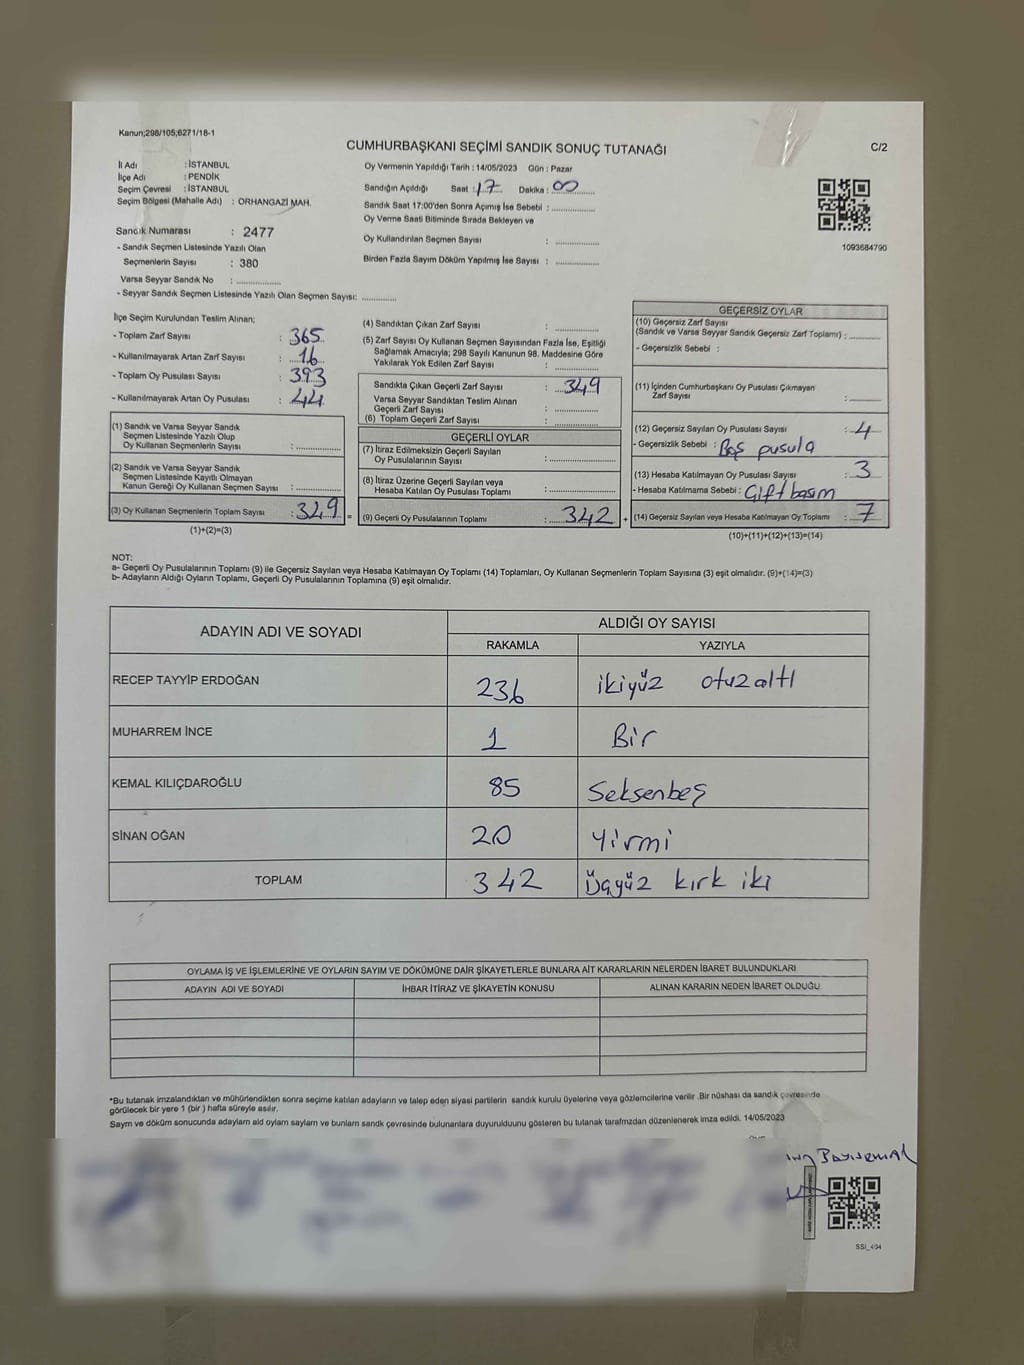 Kanun;298/105;6271/18-1
CUMHURBAŞKANI SEÇİMİ SANDIK SONUÇ TUTANAĞI
C/2
İl Adı : İSTANBUL
İlçe Adı : PENDİK
Seçim Çevresi : İSTANBUL
Seçim Bölgesi (Mahalle Adı) : ORHANGAZİ MAH.
Sandık Numarası : 2477
- Sandık Seçmen Listesinde Yazılı Olan
Seçmenlerin Sayısı : 380
Varsa Seyyar Sandık No : ..............
- Seyyar Sandık Seçmen Listesinde Yazılı Olan Seçmen Sayısı: ...........
Oy Vermenin Yapıldığı Tarih : 14/05/2023 Gün : Pazar
Sandığın Açıldığı Saat : 17 Dakika : 00
Sandık Saat 17:00'den Sonra Açımış İse Sebebi : ..............
Oy Verme Saati Bitiminde Sırada Bekleyen ve
Oy Kullandırılan Seçmen Sayısı : ..............
Birden Fazla Sayım Döküm Yapılmış İse Sayısı : ..............
1093684790
İlçe Seçim Kurulundan Teslim Alınan;
- Toplam Zarf Sayısı : 365
- Kullanılmayarak Artan Zarf Sayısı : 16
- Toplam Oy Pusulası Sayısı : 393
- Kullanılmayarak Artan Oy Pusulası : 44
(1) Sandık ve Varsa Seyyar Sandık
Seçmen Listesinde Yazılı Olup
Oy Kullanan Seçmenlerin Sayısı : ..............
(2) Sandık ve Varsa Seyyar Sandık
Seçmen Listesinde Kayıtlı Olmayan
Kanun Gereği Oy Kullanan Seçmen Sayısı : ..............
(3) Oy Kullanan Seçmenlerin Toplam Sayısı : 349 =
(1)+(2)=(3)
(4) Sandıktan Çıkan Zarf Sayısı : ..............
(5) Zarf Sayısı Oy Kullanan Seçmen Sayısından Fazla İse, Eşitliği
Sağlamak Amacıyla; 298 Sayılı Kanunun 98. Maddesine Göre
Yakılarak Yok Edilen Zarf Sayısı : ..............
Sandıkta Çıkan Geçerli Zarf Sayısı : 349
Varsa Seyyar Sandıktan Teslim Alınan
Geçerli Zarf Sayısı : ..............
(6) Toplam Geçerli Zarf Sayısı : ..............
GEÇERLİ OYLAR
(7) İtiraz Edilmeksizin Geçerli Sayılan
Oy Pusulalarının Sayısı : ..............
(8) İtiraz Üzerine Geçerli Sayılan veya
Hesaba Katılan Oy Pusulası Toplamı : ..............
(9) Geçerli Oy Pusulalarının Toplamı : 342 +
GEÇERSİZ OYLAR
(10) Geçersiz Zarf Sayısı
(Sandık ve Varsa Seyyar Sandık Geçersiz Zarf Toplamı) : ..........
- Geçersizlik Sebebi :
(11) İçinden Cumhurbaşkanı Oy Pusulası Çıkmayan
Zarf Sayısı : ..........
(12) Geçersiz Sayılan Oy Pusulası Sayısı : 4
- Geçersizlik Sebebi : Boş pusula
(13) Hesaba Katılmayan Oy Pusulası Sayısı : 3
- Hesaba Katılmama Sebebi : Çift basım
(14) Geçersiz Sayılan veya Hesaba Katılmayan Oy Toplamı : 7
(10)+(11)+(12)+(13)=(14)
NOT:
a- Geçerli Oy Pusulalarının Toplamı (9) ile Geçersiz Sayılan veya Hesaba Katılmayan Oy Toplamı (14) Toplamları, Oy Kullanan Seçmenlerin Toplam Sayısına (3) eşit olmalıdır. (9)+(14)=(3)
b- Adayların Aldığı Oyların Toplamı, Geçerli Oy Pusulalarının Toplamına (9) eşit olmalıdır.
ADAYIN ADI VE SOYADI ALDIĞI OY SAYISI
RAKAMLA YAZIYLA
RECEP TAYYİP ERDOĞAN 236 ikiyüz otuzaltı
MUHARREM İNCE 1 Bir
KEMAL KILIÇDAROĞLU 85 Seksenbeş
SİNAN OĞAN 20 Yirmi
TOPLAM 342 Üçyüz kırk iki
OYLAMA İŞ VE İŞLEMLERİNE VE OYLARIN SAYIM VE DÖKÜMÜNE DAİR ŞİKAYETLERLE BUNLARA AİT KARARLARIN NELERDEN İBARET BULUNDUKLARI
ADAYIN ADI VE SOYADI İHBAR İTİRAZ VE ŞİKAYETİN KONUSU ALINAN KARARIN NEDEN İBARET OLDUĞU
*Bu tutanak imzalandıktan ve mühürlendikten sonra seçime katılan adayların ve talep eden siyasi partilerin sandık kurulu üyelerine veya gözlemcilerine verilir .Bir nüshası da sandık çevresinde
görülecek bir yere 1 (bir ) hafta süreyle asılır.
Sayım ve döküm sonucunda adayların ald oyların sayların ve bunların sandk çevresinde bulunanlara duyurulduunu gösteren bu tutanak tarafmzdan düzenlenerek imza edildi. 14/05/2023